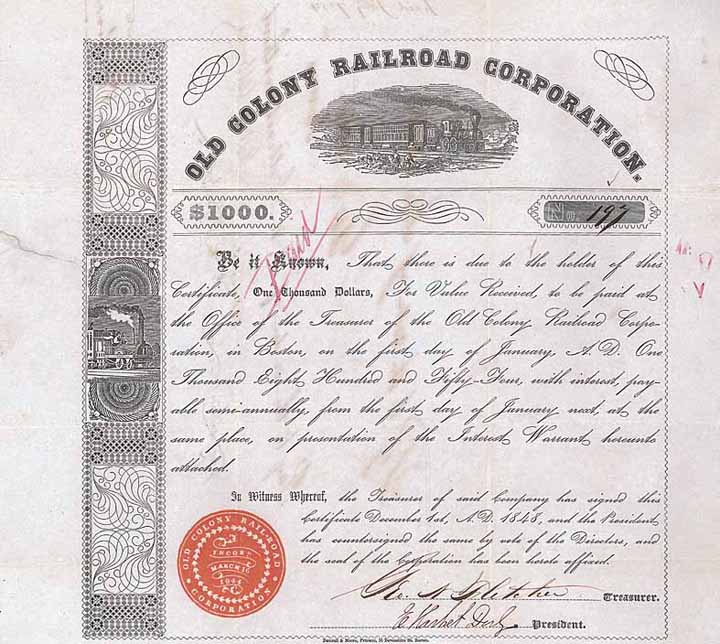 OLD COLONY RAILROAD CORPORATION.
$1000.
No 197
Paid
Be it Known, That there is due to the holder of this
Certificate, One Thousand Dollars, For Value Received, to be paid at
the Office of the Treasurer of the Old Colony Railroad Corpo-
ration, in Boston, on the first day of January, A.D. One
Thousand Eight Hundred and Fifty-Four, with interest, pay-
able semi-annually, from the first day of January next, at the
same place, on presentation of the Interest Warrant hereunto
attached.
In Witness Whereof, the Treasurer of said Company has signed this
Certificate December 1st, A.D. 1848, and the President
has countersigned the same by vote of the Directors, and
the seal of the Corporation has been hereto affixed.
OLD COLONY RAIL-ROAD
CORPORATION
INCORP.
MARCH 16
1844
Treasurer.
E Hasket Derby President.